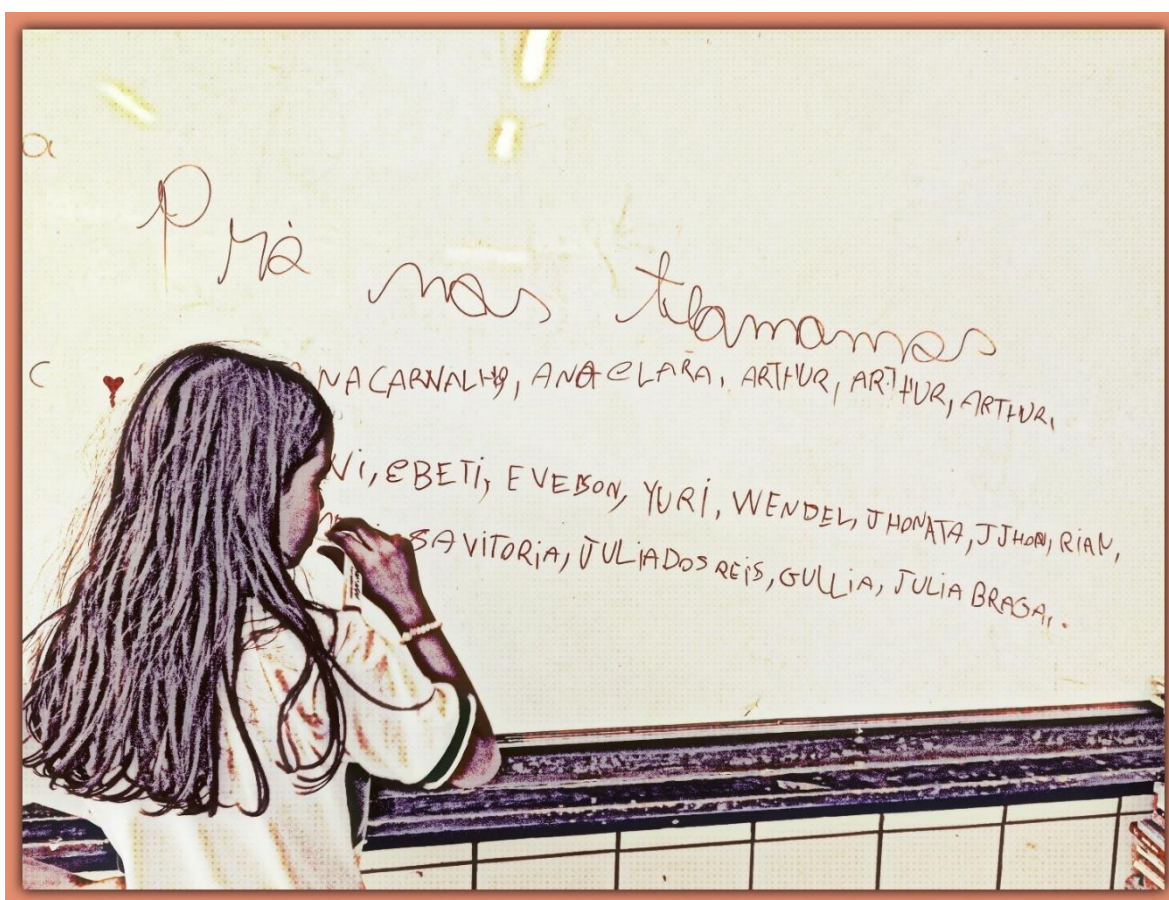 a
Pri nos teamamos
C ♥ NA CARVALHO, ANA CLARA, ARTHUR, ARTHUR, ARTHUR,
VI, EBETI, EVERSON, YURI, WENDEL, JHONATA, JJHON, RIAN,
SA VITORIA, JULIA DOS REIS, GULLIA, JULIA BRAGA,.